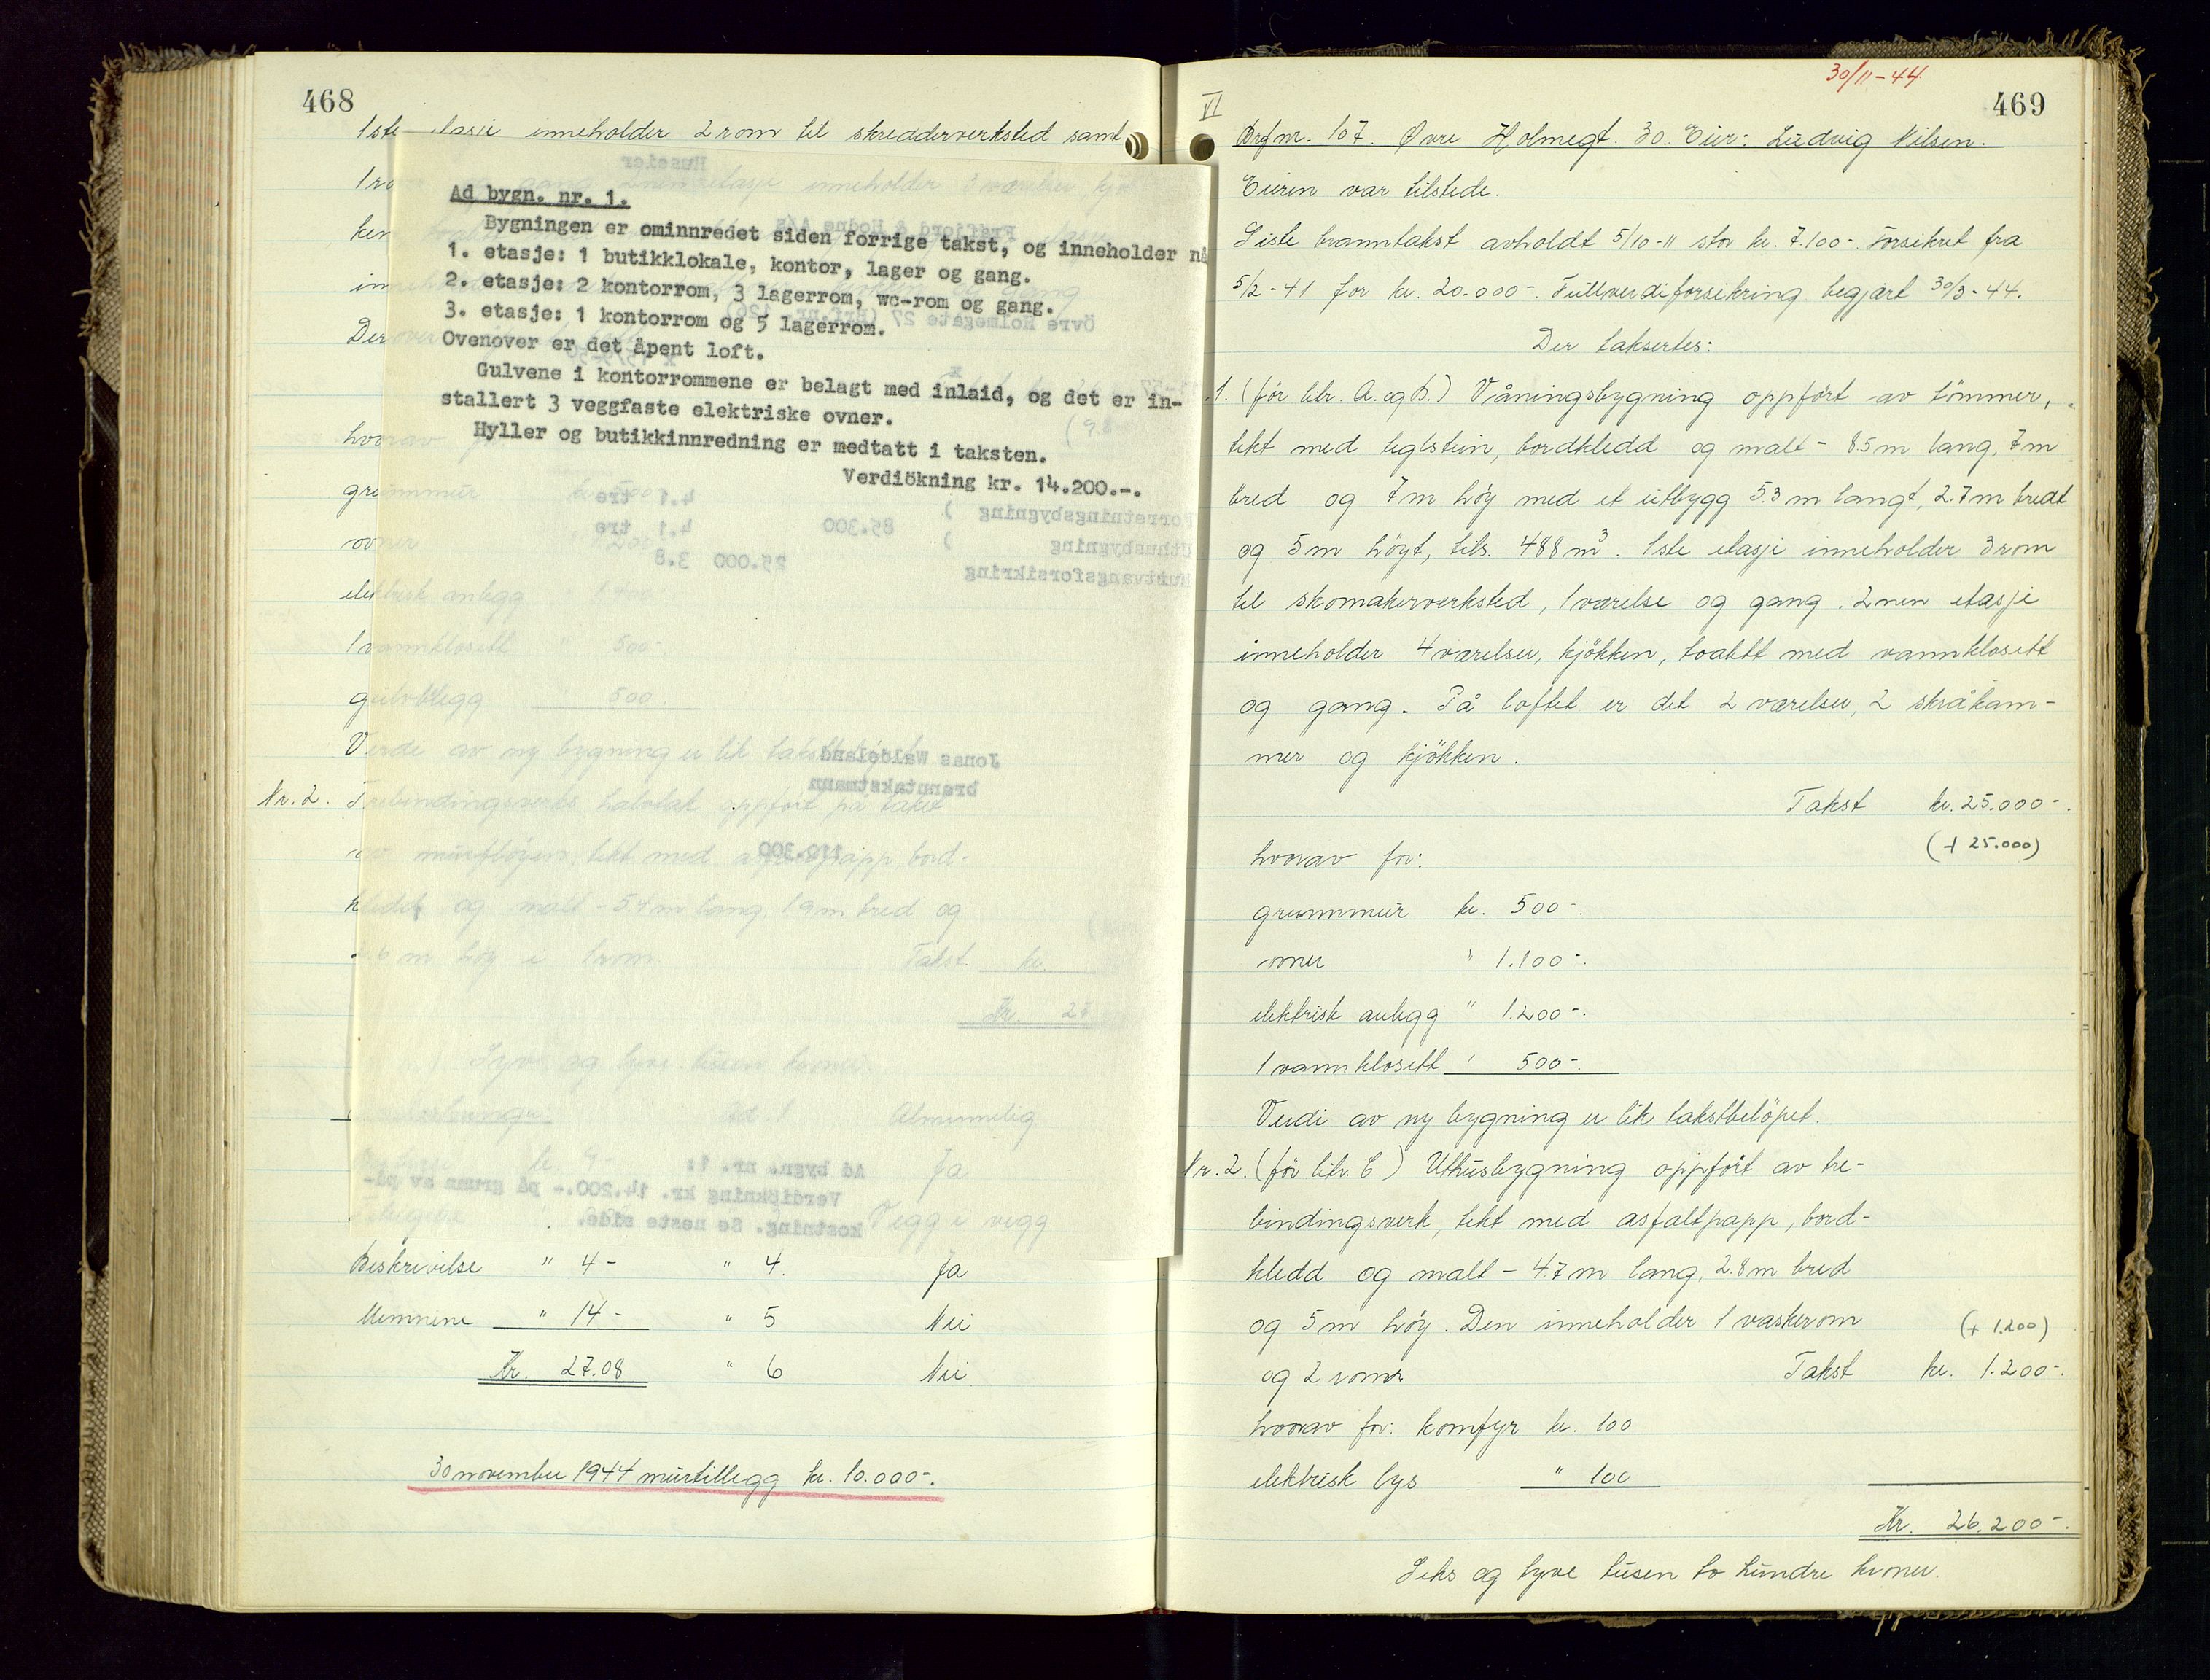 468
1ste etasje inneholder 2 rom til skredderverksted samt
Ad bygn. nr. 1.
Bygningen er ominnredet siden forrige takst, og inneholder nå
1. etasje: 1 butikklokale, kontor, lager og gang.
2. etasje: 2 kontorrom, 3 lagerrom, wc-rom og gang.
3. etasje: 1 kontorrom og 5 lagerrom.
Ovenover er det åpent loft.
Gulvene i kontorrommene er belagt med inlaid, og det er in-
stallert 3 veggfaste elektriske ovner.
Hyller og butikkinnredning er medtatt i taksten.
Verdiökning kr. 14.200.-.
hvorav
grunnmur
ovner
elektrisk anlegg " 1400
1 vannklosett " 500-.
gulvbelegg 500.
Verdi av ny bygning er lik takstbeløpet
Nr. 2. Trebindingsverks halvtak oppført på taket
av murfløyen, tekt med asfaltpapp, bord-
kledd og malt - 5.4 m lang, 1.9 m bred og
m høy i 1 rom. Takst kr.
Kr. 27
Syv og tyve tusen kroner.
Ad. 1 Almminnelig
Ja
Vegg i vegg
Beskrivelse " 4- " 4. Ja
Mennene " 14- " 5 Nei
Kr. 27.08 " 6 Nei
30 november 1944 murtillegg kr. 10.000-.
30/11-44
469
VI
Brfnr. 107. Øvre Holmegt. 30. Eier: Ludvig Nilsen.
Eieren var tilstede.
Siste branntakst avholdt 5/10-11 stor kr. 7.100-. Forsikret fra
5/2-41 for kr. 20.000-. Fullverdiforsikring begjært 30/3-44.
Der taksertes:
1. (før litr. A. og B.) Våningsbygning oppført av tømmer,
tekt med teglstein, bordkledd og malt - 8.5 m lang, 7 m
bred og 7 m høy med et utbygg 5.3 m langt, 2.7 m bredt
og 5 m høyt, tils. 488 m³. 1ste etasje inneholder 3 rom
til skomakerverksted, 1 værelse og gang. 2nen etasje
inneholder 4 værelser, kjøkken, toalett med vannklosett
og gang. På loftet er det 2 værelser, 2 skråkam-
mer og kjøkken.
Takst kr. 25.000-.
(+ 25.000)
hvorav for:
grunnmur kr. 500-.
ovner " 1.100-.
elektrisk anlegg " 1.200-.
1 vannklosett " 500-.
Verdi av ny bygning er lik takstbeløpet.
Nr. 2. (før litr. C) Uthusbygning oppført av tre-
bindingsverk, tekt med asfaltpapp, bord-
kledd og malt - 4.7 m lang, 2.8 m bred
og 5 m høy. Den inneholder 1 vaskerom (+ 1.200)
og 2 rom Takst kr. 1.200-.
hvorav for: komfyr kr. 100
elektrisk lys " 100
Kr. 26.200-.
Seks og tyve tusen to hundre kroner.